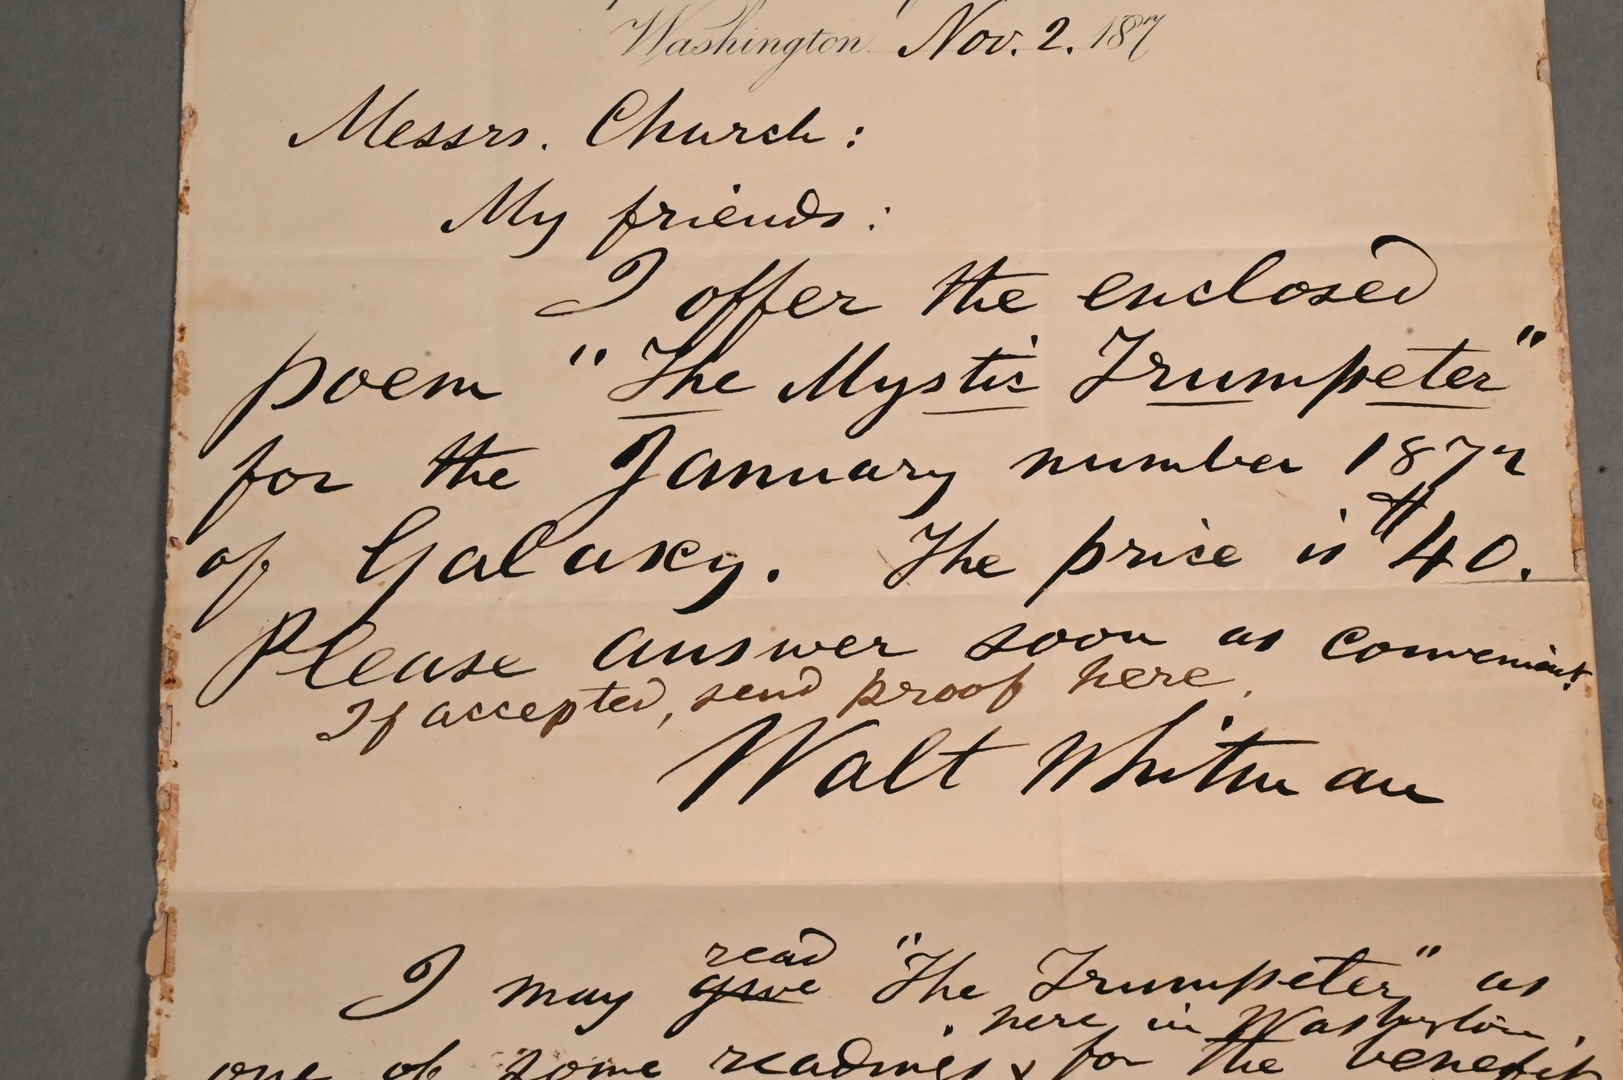 Washington Nov. 2. 187
Messrs. Church:
My friends:
I offer the enclosed
poem "The Mystic Trumpeter"
for the January number 1872
of Galaxy. The price is $40.
Please answer soon as convenient.
If accepted, send proof here.
Walt Whitman
read
I may give "The Trumpeter" as
here in Washington,
one of some readings for the benefit